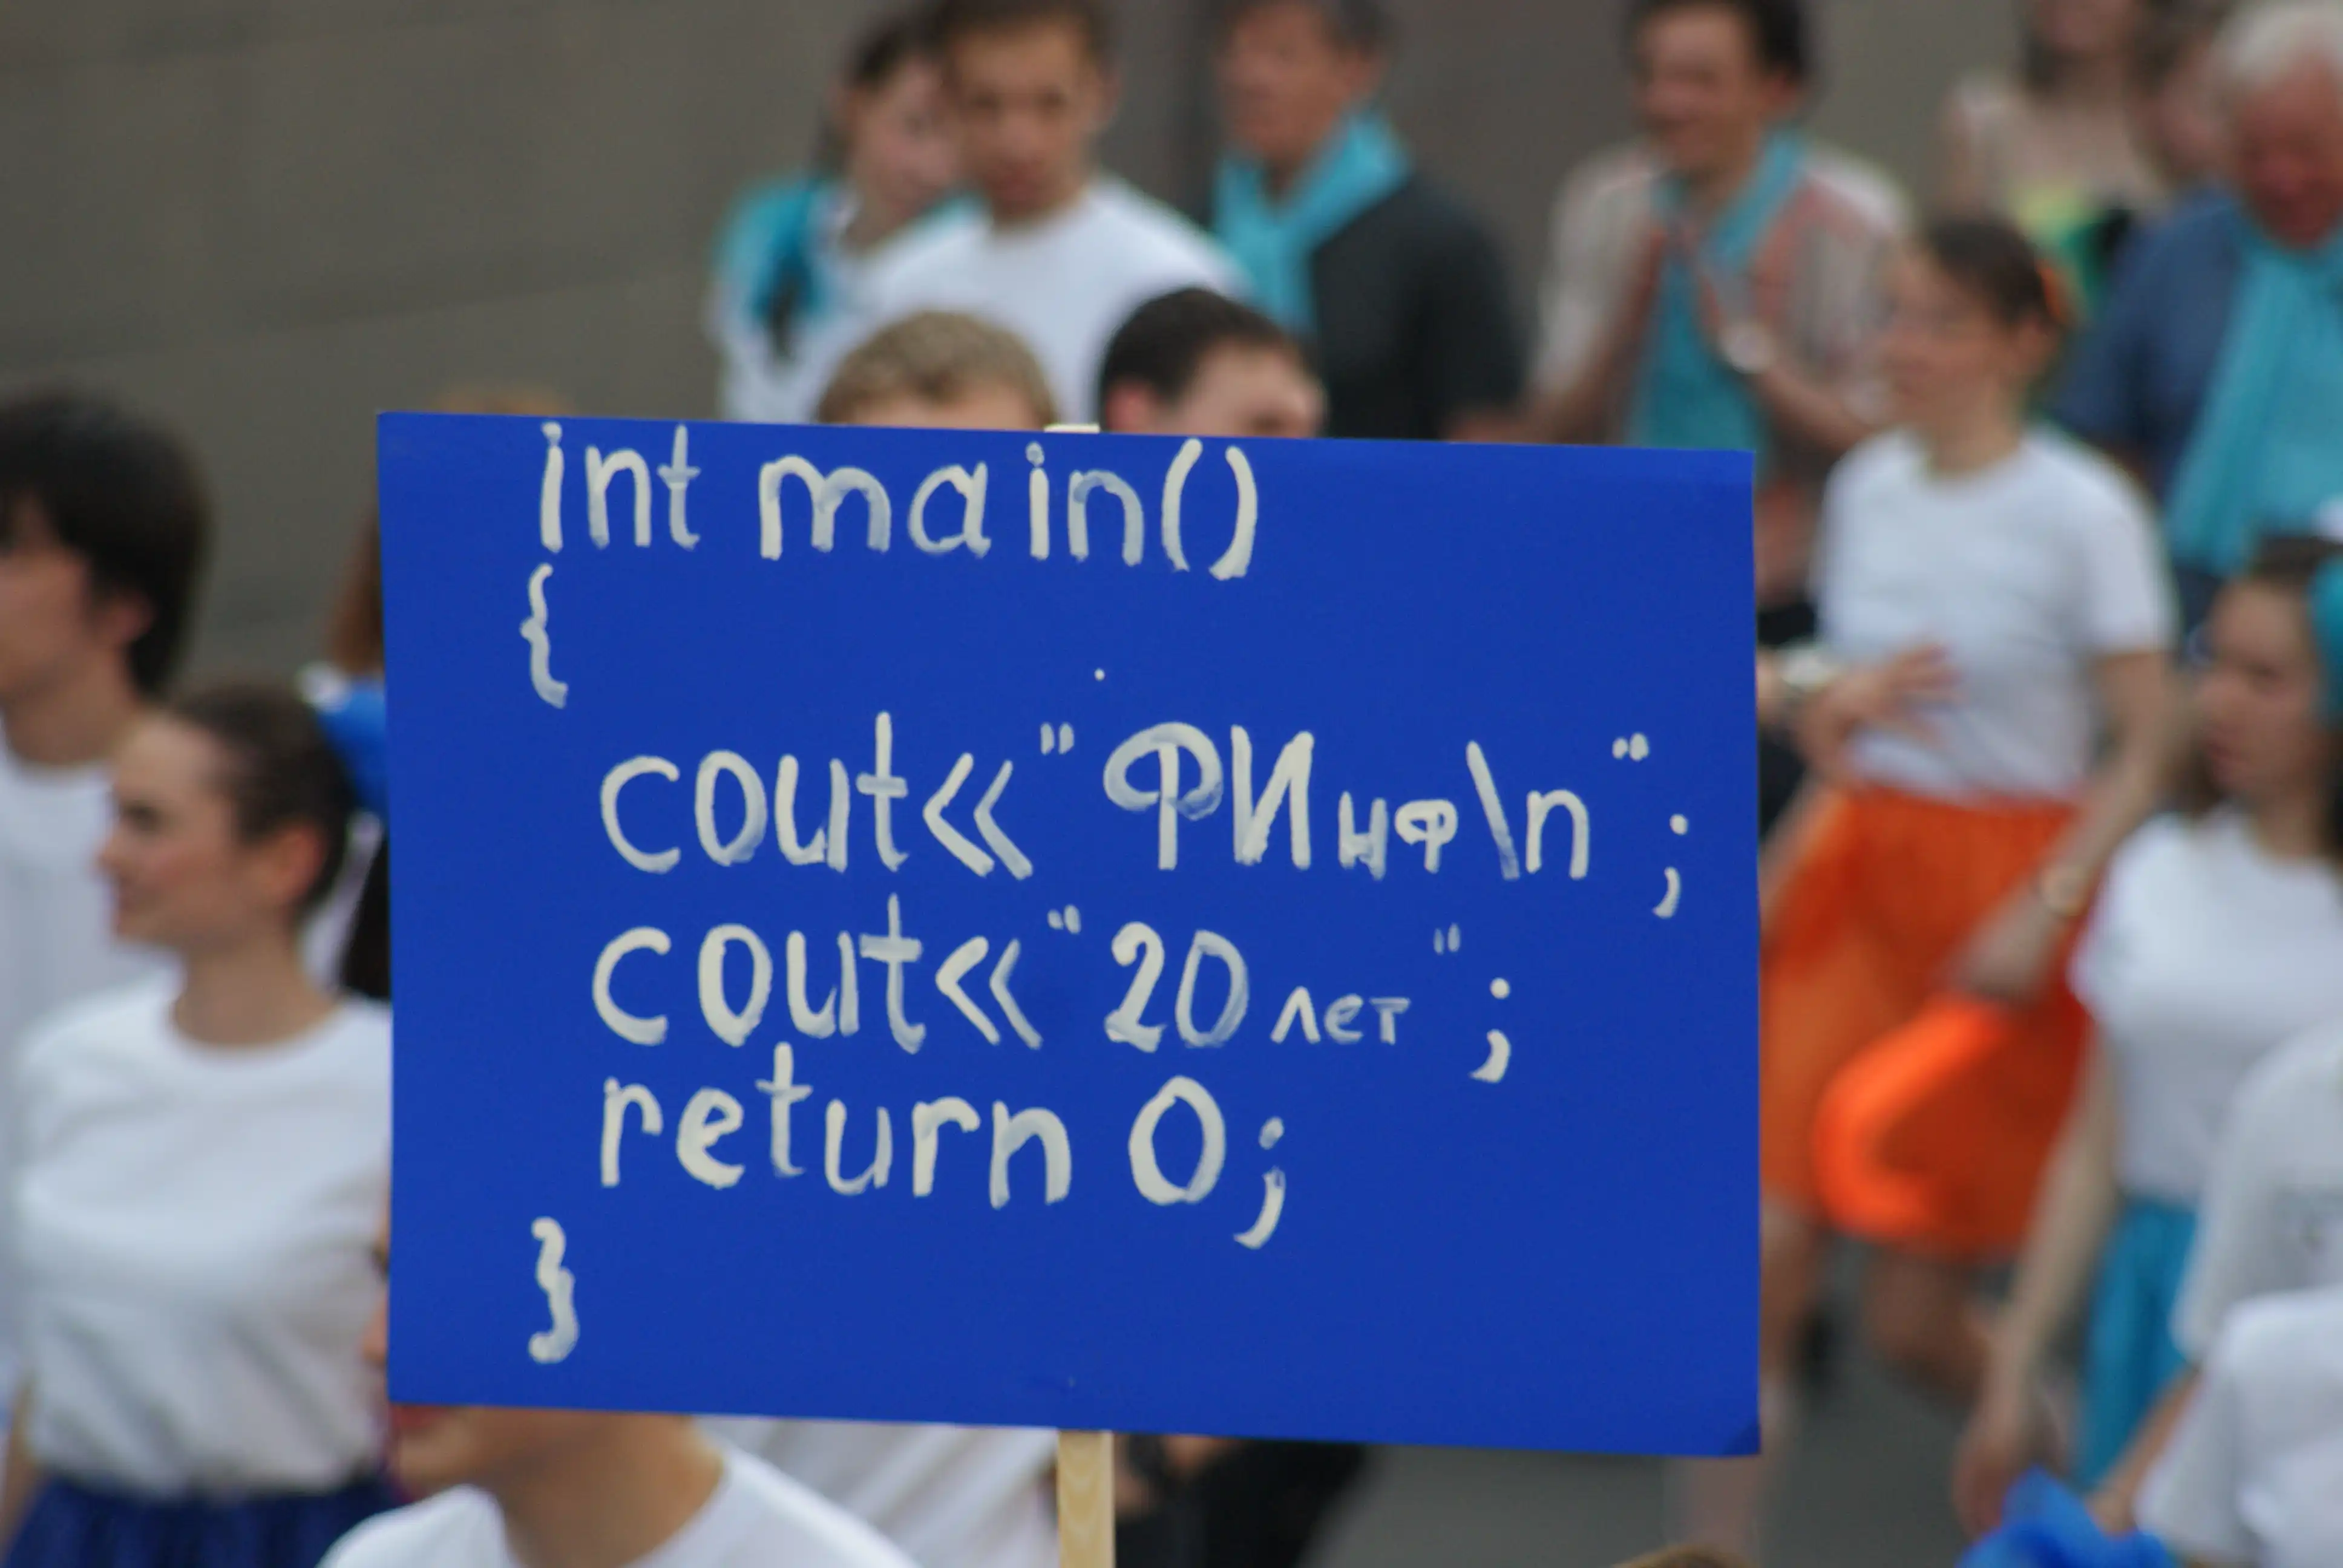 int main()
{
cout<<"ФИнф\n";
cout<<"20 лет";
return 0;
}